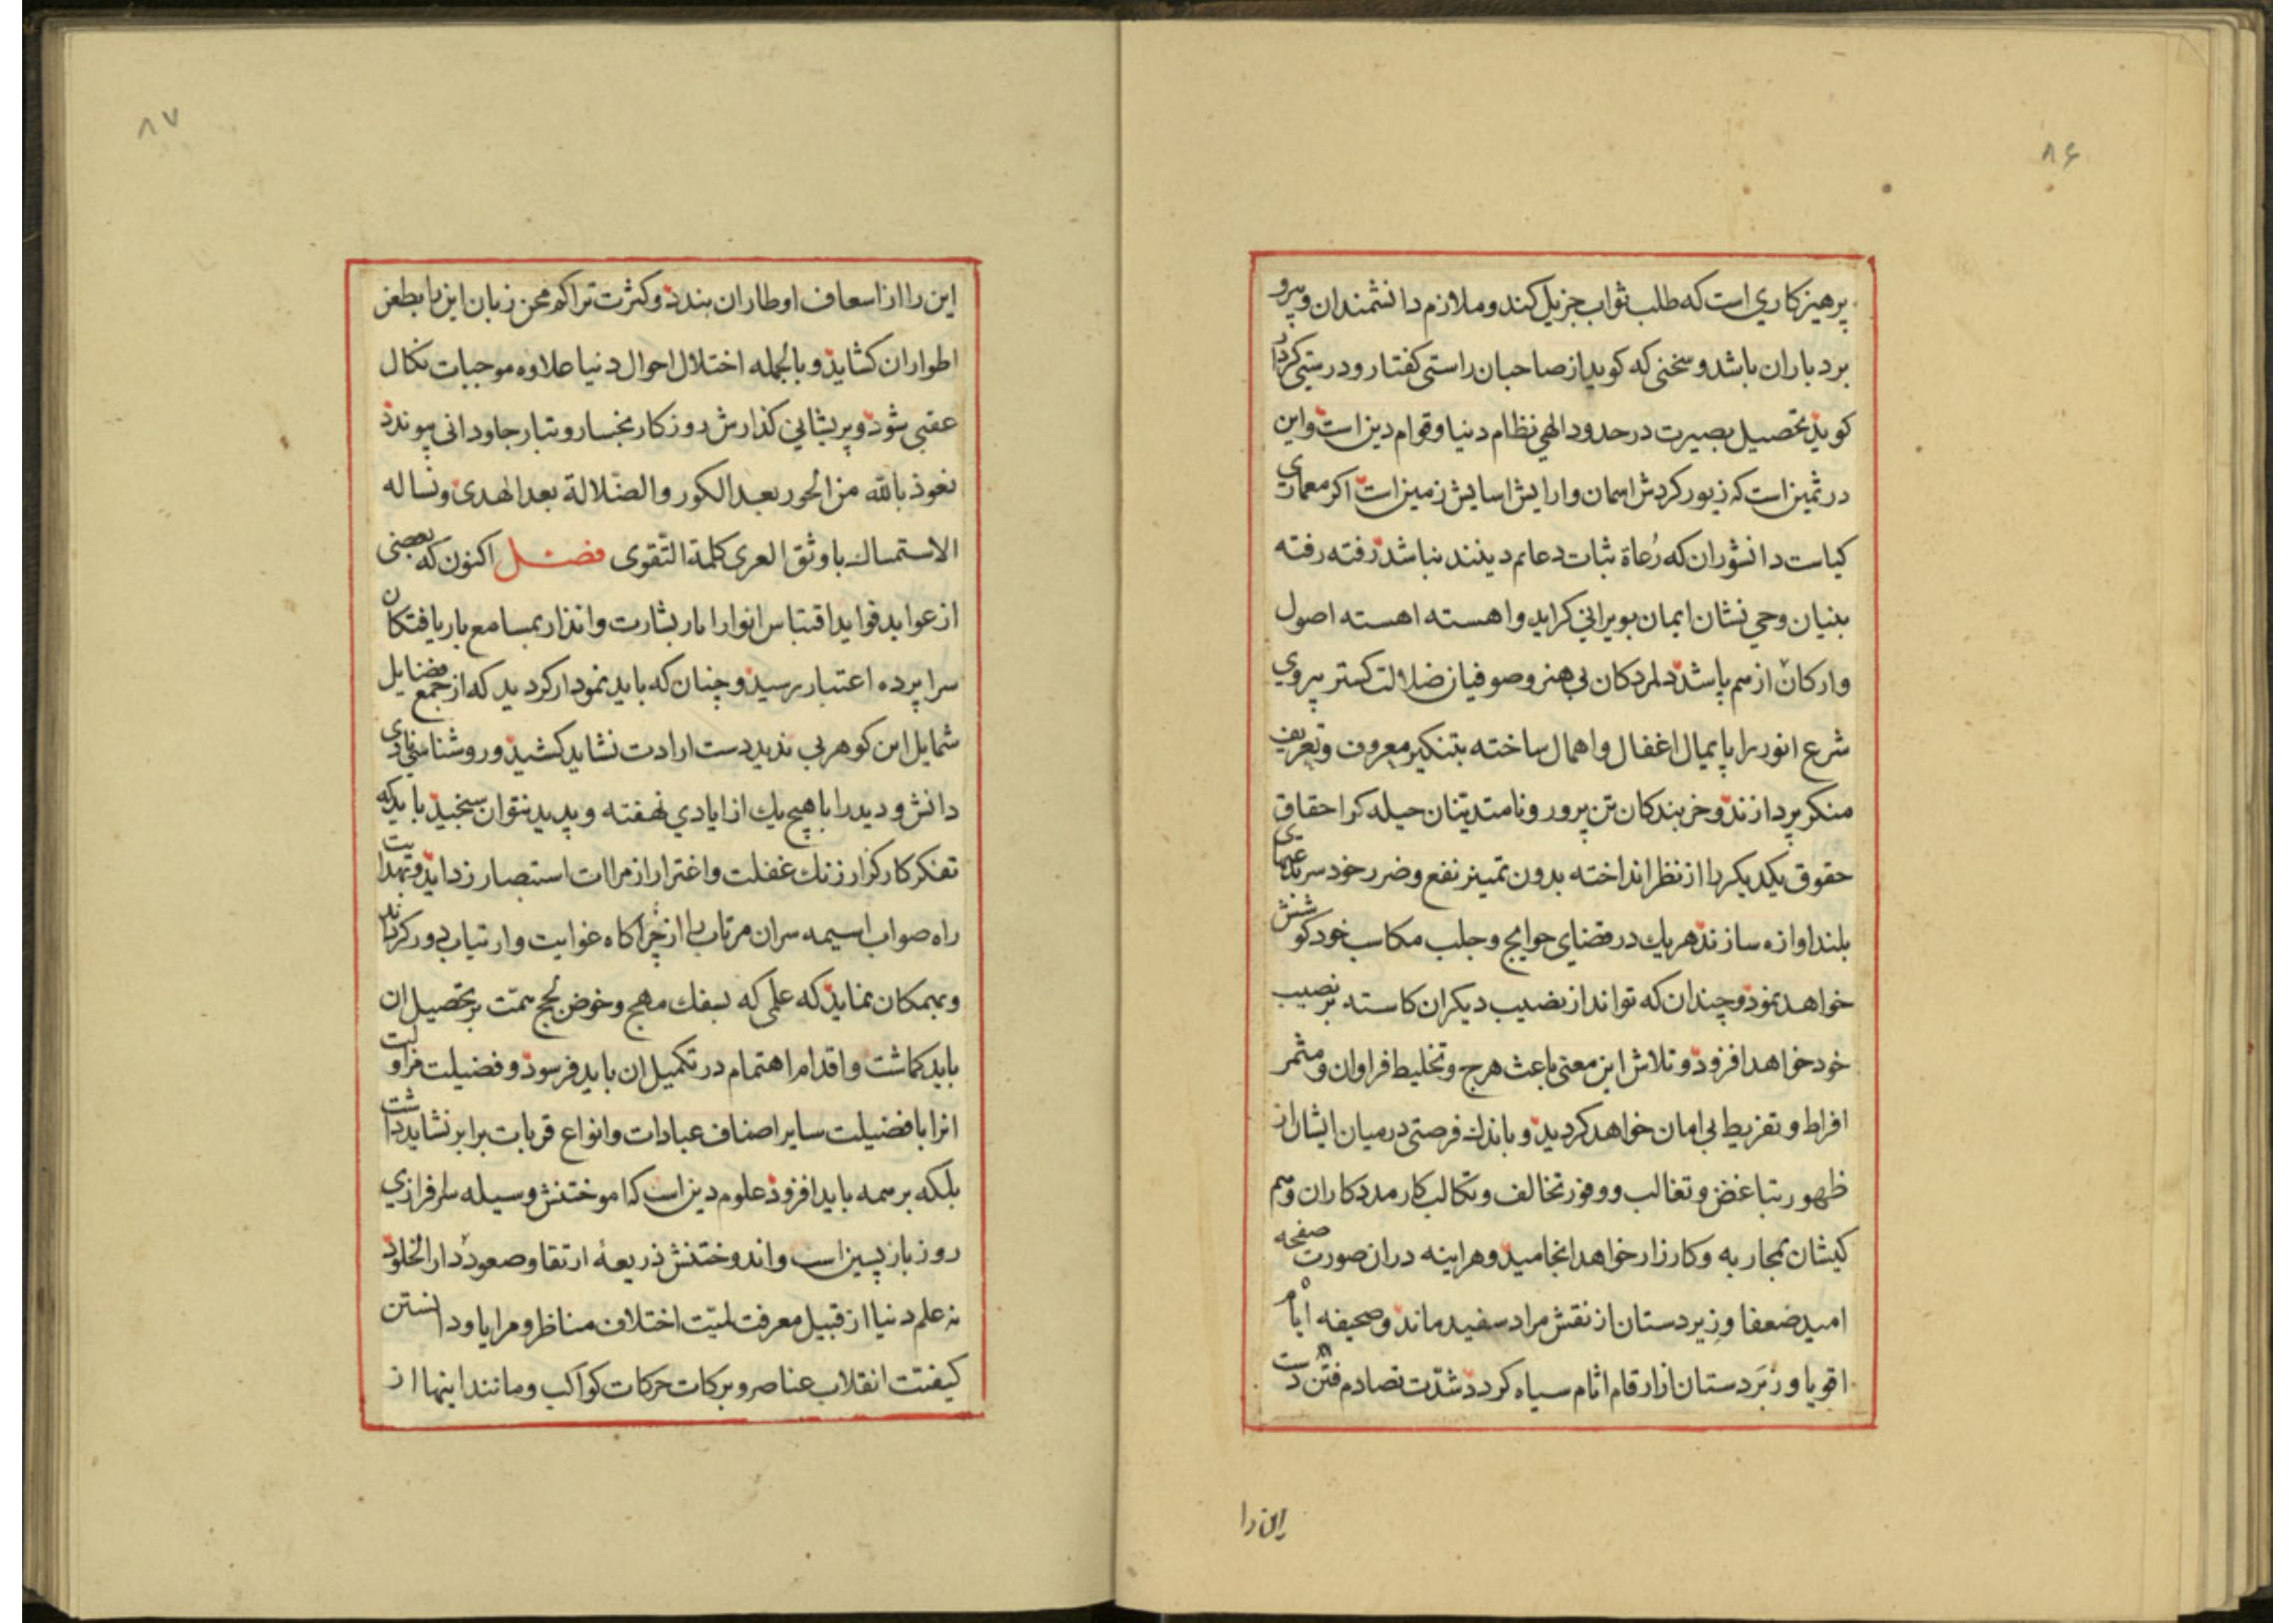 ۸۶
پرهیزکاری است که طلب ثواب جزیل کند و ملازم دانشمندان و پیرو
بردباران باشد و سخنی که کوید از صاحبان راستی کفتار و درستی کردار
کوید تحصیل بصیرت در حدود الهی نظام دنیا و قوام دین است و این
در ثمین است که زیور کردش اسمان و ارایش اسایش زمین است اکر معماری
کیاست دانشوران که رُعاة ثبات دعایم دینند نباشد رفته رفته
بنیان وحی نشان ایمان بویرانی کراید و اهسته اهسته اصول
و ارکان از هم پاشد دلمردکان بی هنر و صوفیان ضلالت کستر پیروی
شرع انور را پایمال اغفال و اهمال ساخته بتنکیر معروف و تعریف
منکر پردازند و خربندکان تن پرور و نامتدینان حیله کر احقاق
حقوق یکدیکر را از نظر انداخته بدون تمییز نفع و ضرر خود سر ندای
بلند اوازه سازند هر یك در قضای حوایج و جلب مکاسب خود کوشش
خواهد نمود و چندان که تواند از نصیب دیکران کاسته بر نصیب
خود خواهد افزود و تلاش این معنی باعث هرج و تخلیط فراوان و مثمر
افراط و تفریط بی امان خواهد کردید و باندك فرصتی در میان ایشان از
ظهور تباغض و تغالب و وفور تخالف و تکالب کار مددکاران و هم
کیشان بمحاربه و کارزار خواهد انجامید و هراینه در ان صورت صفحه
امید ضعفا و زیردستان از نقش مراد سفید ماند و صحیفه ایام
اقویا و زبَردستان از ارقام اثام سیاه کردد شدّت تصادم فتن دست
این را
۸۷
این را از اسعاف اوطار ان بندد و کثرت تراکم محن زبان این را بطعن
اطوار ان کشاید و بالجمله اختلال احوال دنیا علاوه موجبات نکال
عقبی شود و پریشانی کذارش روزکار بخسار و تبار جاودانی پیوندد
نعوذ بالله من الحور بعد الکور والضلالة بعد الهدی ونساله
الاستمساك باوثق العری کلمة التّقوی فصل اکنون که بعضی
از عواید فواید اقتباس انوار امار بشارت و انذار بمسامع باریافتکان
سراپرده اعتبار رسید و چنان که باید نمودار کردید که از جمع فضایل
شمایل این کوهر بی ندید دست ارادت نشاید کشید و روشناسی نمادی
دانش و دید را با هیچ یك از ایادی نهفته و پدید نتوان سنجید باید که
تفکر کارکزار زنك غفلت و اغترار از مراات استبصار زداید و بهدایت
راه صواب اسیمه سران مرتاب را از چراکاه غوایت و ارتیاب دور کرداند
و بهمکان نماید که علمی که بسفك مهج و خوض لجج همّت بر تحصیل ان
باید کماشت و اقدام اهتمام در تکمیل ان باید فرسود و فضیلت مزاولت
انرا با فضیلت سایر اصناف عبادات و انواع قربات برابر نشاید داشت
بلکه بر همه باید افزود علوم دین است که اموختنش وسیله سرفرازی
روز بازپسین است و اندوختنش ذریعهٔ ارتقا و صعود دار الخلود
نه علم دنیا از قبیل معرفت لمیّت اختلاف مناظر و مرایا و دانستن
کیفیّت انقلاب عناصر و برکات حرکات کواکب و مانند اینها از